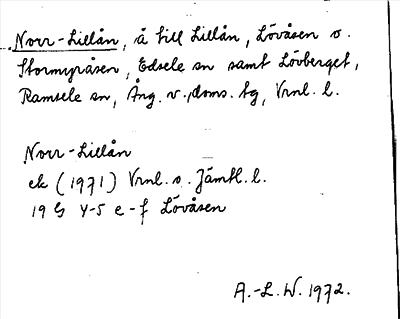 Norr-Lillån, å till Lillån, Lövåsen o.
Stormyråsen, Edsele sn samt Lövberget,
Ramsele sn, Ång. v. doms. tg, Vrnl. l.
Norr-Lillån
ek (1971) Vrnl. o. Jämtl. l.
19 G 4-5 e-f Lövåsen
A.-L. W. 1972.